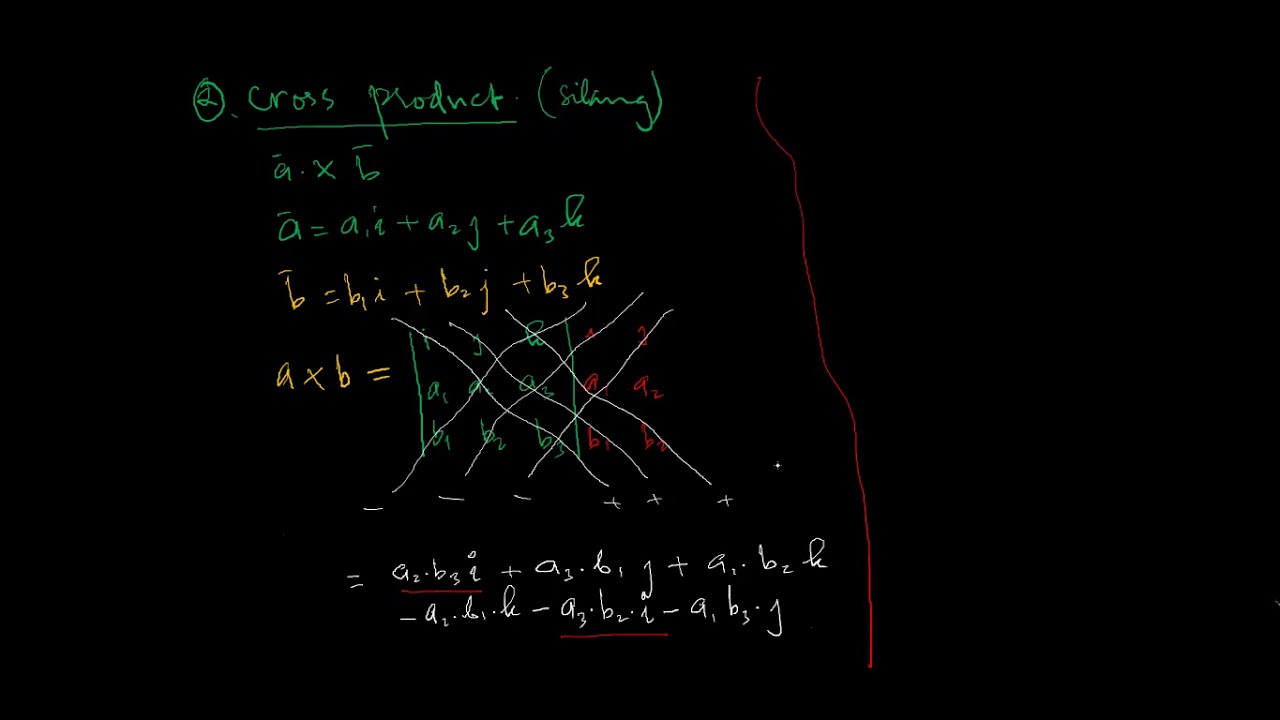 ②. cross product. (silang)
a̅ . × b̅
a̅ = a₁i + a₂j + a₃k
b̅ = b₁i + b₂j + b₃k
i j k i j
a × b = a₁ a₂ a₃ a₁ a₂
b₁ b₂ b₃ b₁ b₂
− − − + + +
= a₂.b₃i + a₃.b₁j + a₁.b₂k
− a₂.b₁.k − a₃.b₂.i − a₁b₃.j